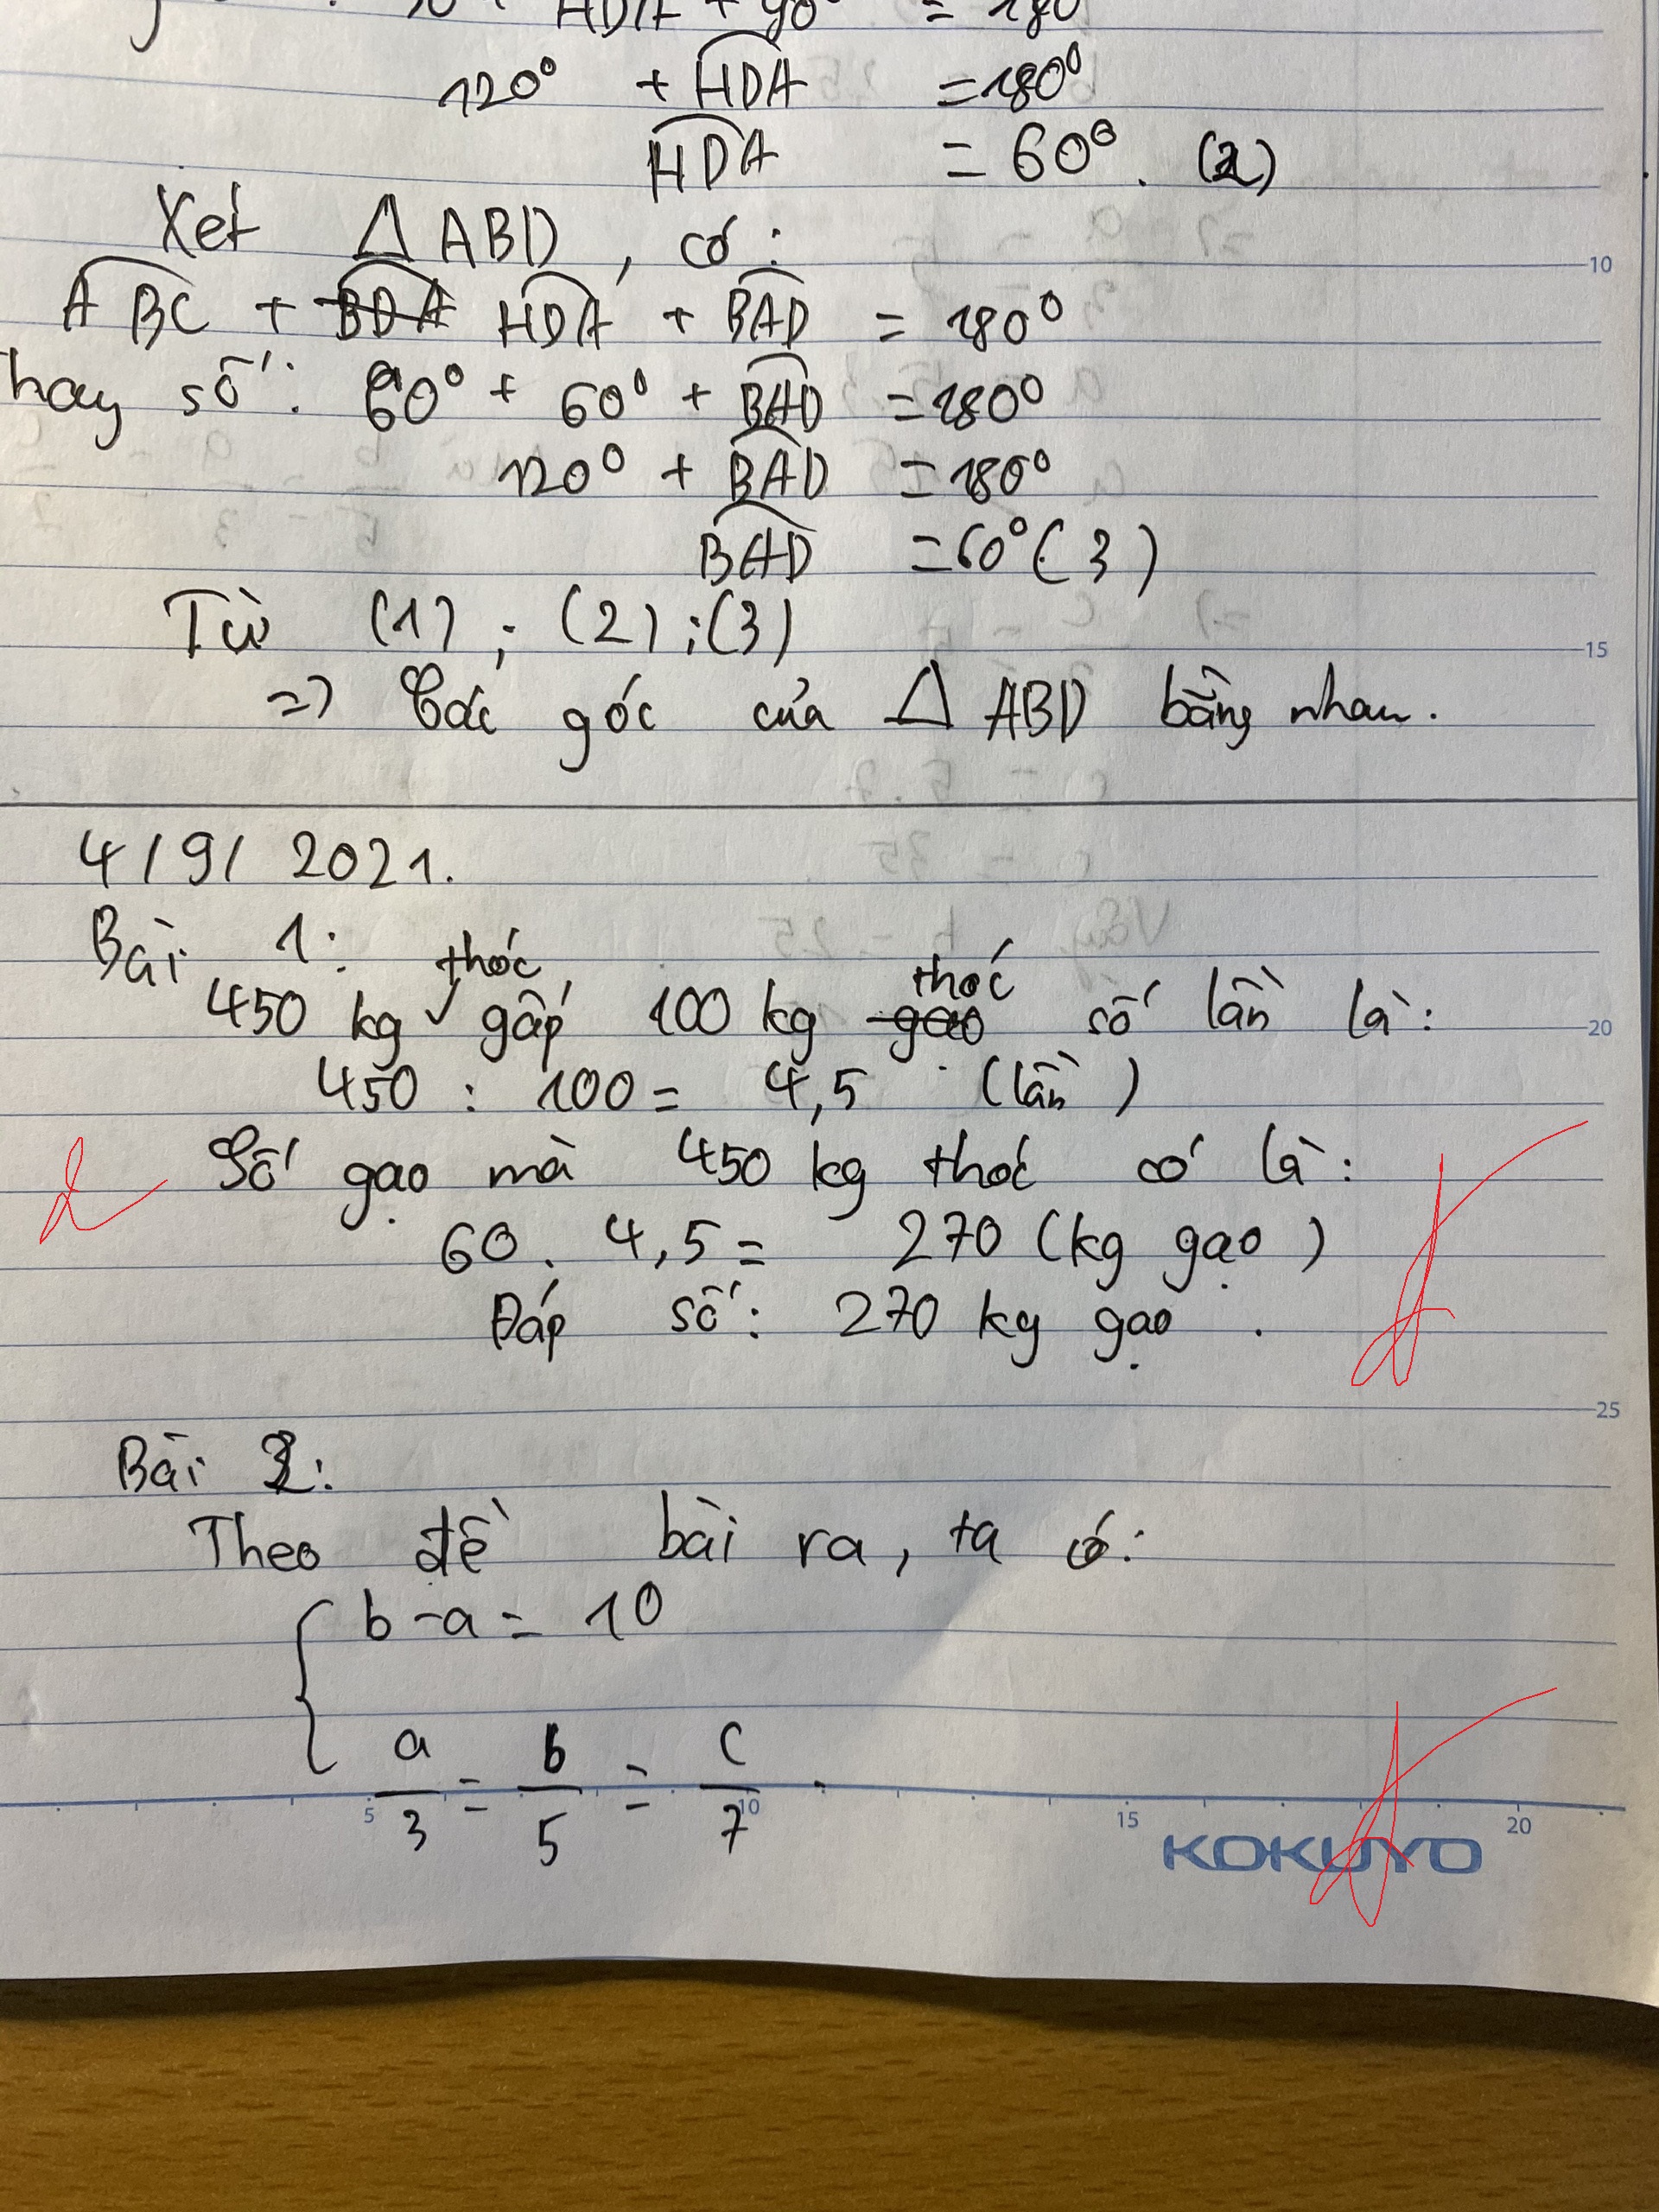 HDA + 90° = 180
120° + HDA = 180°
HDA = 60°. (2)
Xét Δ ABD, có:
ABC + BDA HDA + BAD = 180°
hay số: 60° + 60° + BAD = 180°
120° + BAD = 180°
BAD = 60° (3)
Từ (1); (2); (3)
=> Các góc của Δ ABD bằng nhau.
4/9/2021.
Bài 1:
450 kg thóc gấp 100 kg gạo thóc số lần là:
450 : 100 = 4,5 (lần)
Số gạo mà 450 kg thóc có là:
60. 4,5 = 270 (kg gạo)
Đáp số: 270 kg gạo.
Bài 2:
Theo đề bài ra, ta có:
{ b - a = 10
a/3 = b/5 = c/7.
KOKUYO
5 10 15 20
10
15
20
25